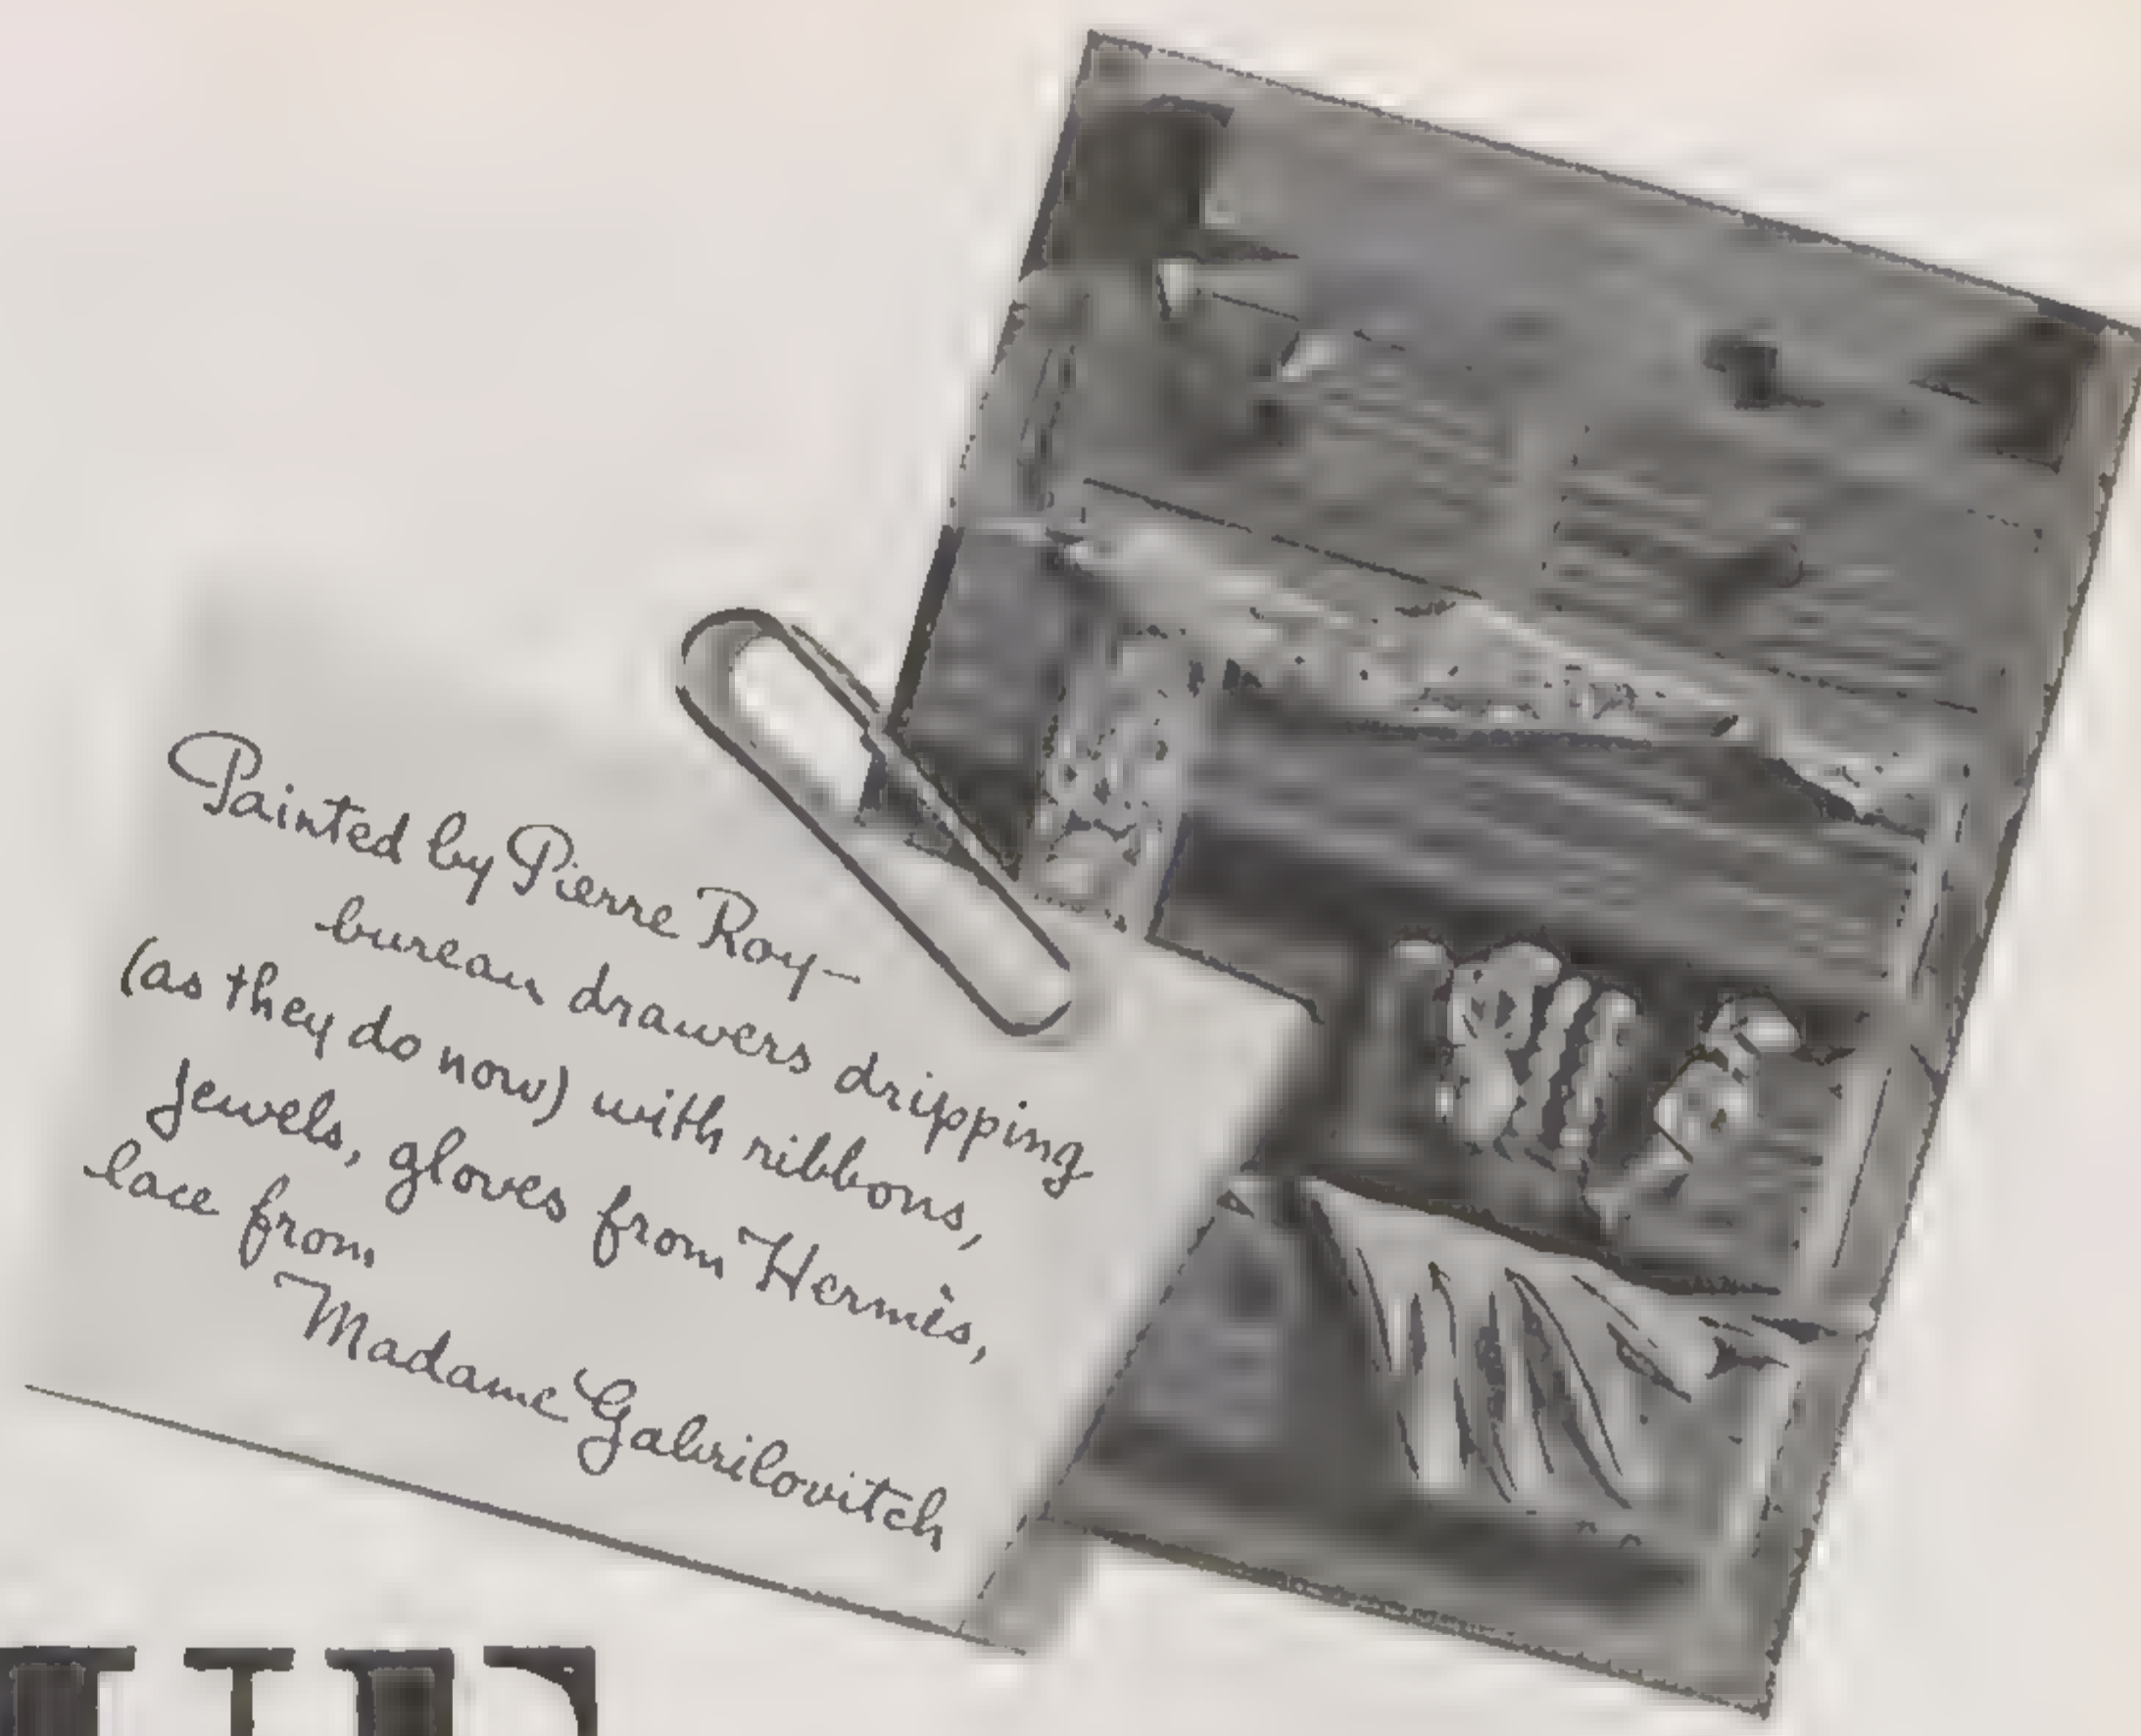 Painted by Pierre Roy—
bureau drawers dripping
(as they do now) with ribbons,
jewels, gloves from Hermès,
lace from
Madame Gabrilovitch